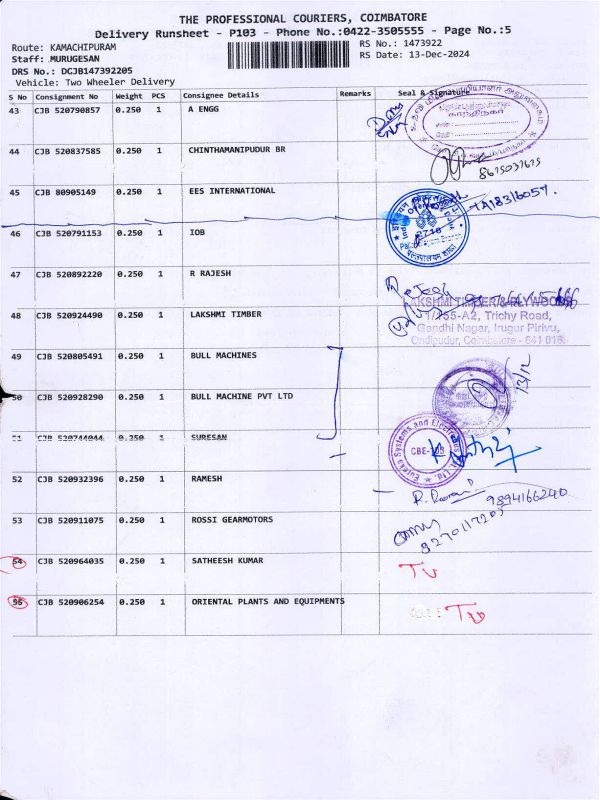 THE PROFESSIONAL COURIERS, COIMBATORE
Delivery Runsheet - P103 - Phone No.:0422-3505555 - Page No.:5
Route: KAMACHIPURAM RS No.: 1473922
Staff: MURUGESAN RS Date: 13-Dec-2024
DRS No.: DCJB147392205
Vehicle: Two Wheeler Delivery
S No Consignment No Weight PCS Consignee Details Remarks Seal & Signature
43 CJB 520790857 0.250 1 A ENGG
44 CJB 520837585 0.250 1 CHINTHAMANIPUDUR BR
8675037675
45 CJB 80905149 0.250 1 EES INTERNATIONAL
TA18316057.
46 CJB 520791153 0.250 1 IOB
2716
47 CJB 520892220 0.250 1 R RAJESH
LAKSHMI TIMBER & PLYWOODS
48 CJB 520924490 0.250 1 LAKSHMI TIMBER
1/255-A2, Trichy Road,
Gandhi Nagar, Irugur Pirivu,
Ondipudur, Coimbatore - 641 016.
49 CJB 520805491 0.250 1 BULL MACHINES
13/12
50 CJB 520928290 0.250 1 BULL MACHINE PVT LTD
51 CJB 520744044 0.250 1 SURESAN
Eureka Systems and Electrodes Pvt. Ltd.
CBE-103
52 CJB 520932396 0.250 1 RAMESH
9894166240
53 CJB 520911075 0.250 1 ROSSI GEARMOTORS
54 CJB 520964035 0.250 1 SATHEESH KUMAR
55 CJB 520906254 0.250 1 ORIENTAL PLANTS AND EQUIPMENTS